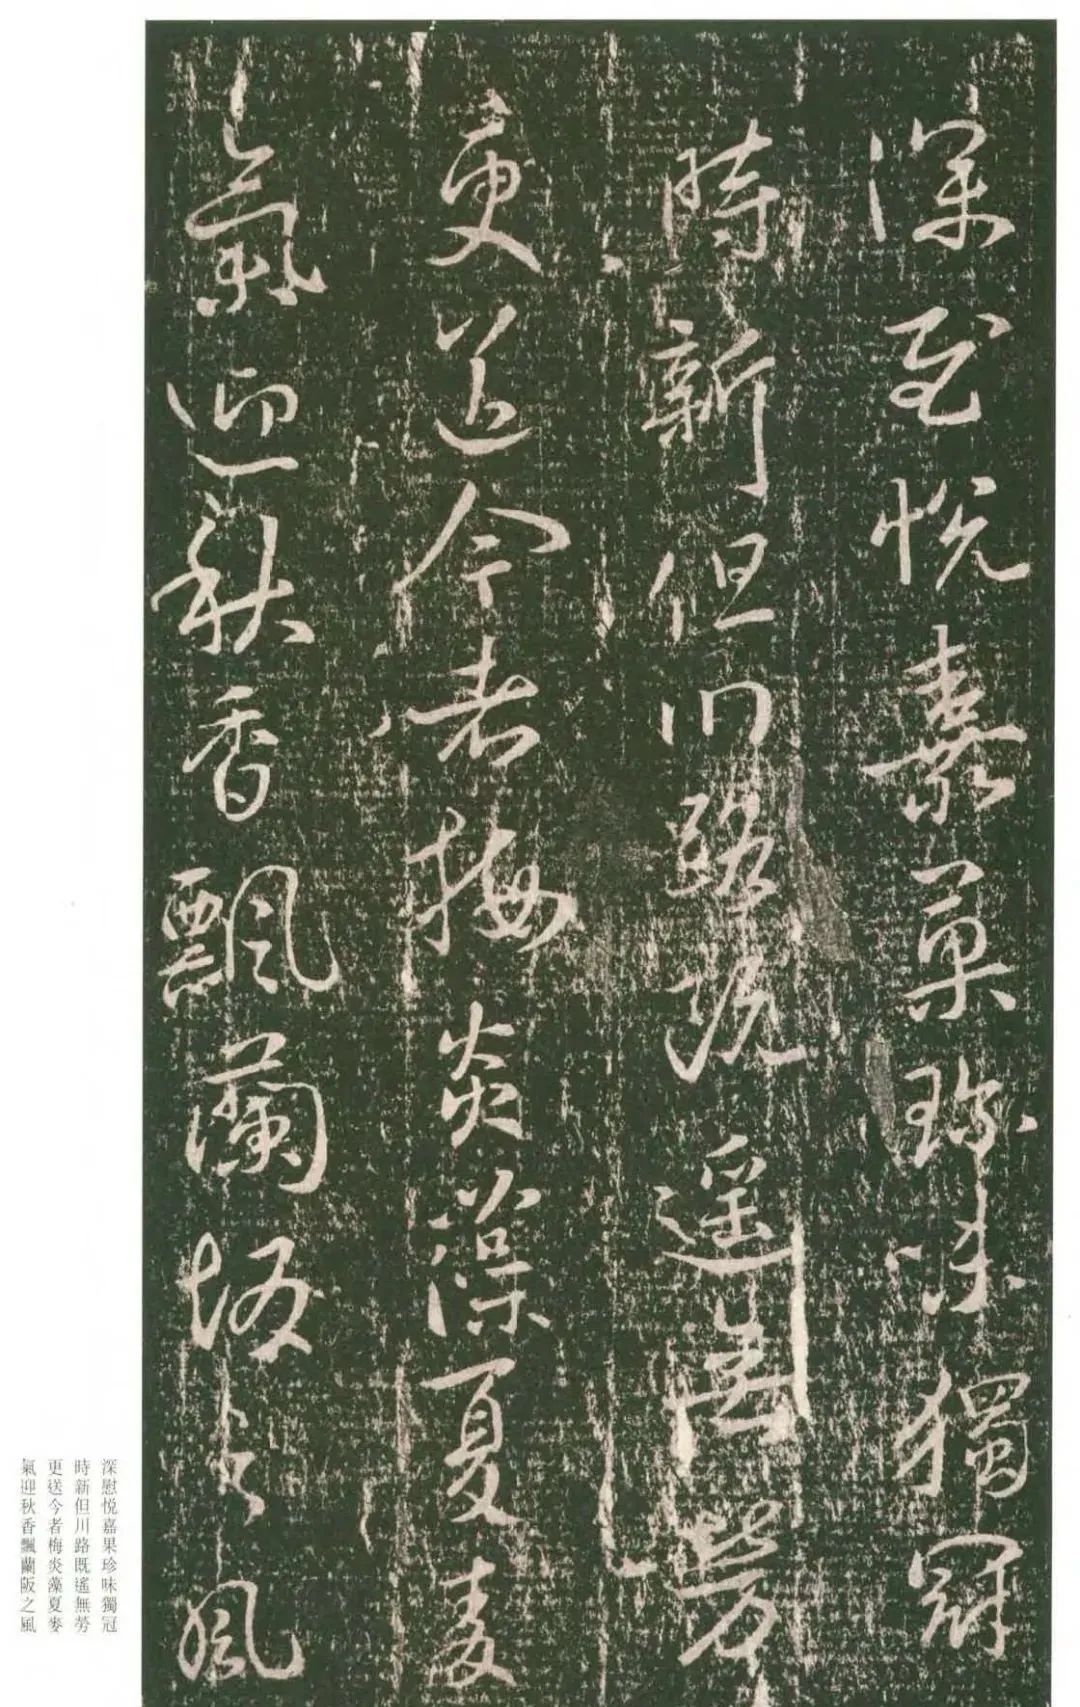 深慰悦嘉果珍味獨冠
時新但川路既遙無勞
更送今者梅炎藻夏麥
氣迎秋香飄蘭阪之風
深慰悦嘉果珍味獨冠
時新但川路既遙無勞
更送今者梅炎藻夏麥
氣迎秋香飄蘭阪之風